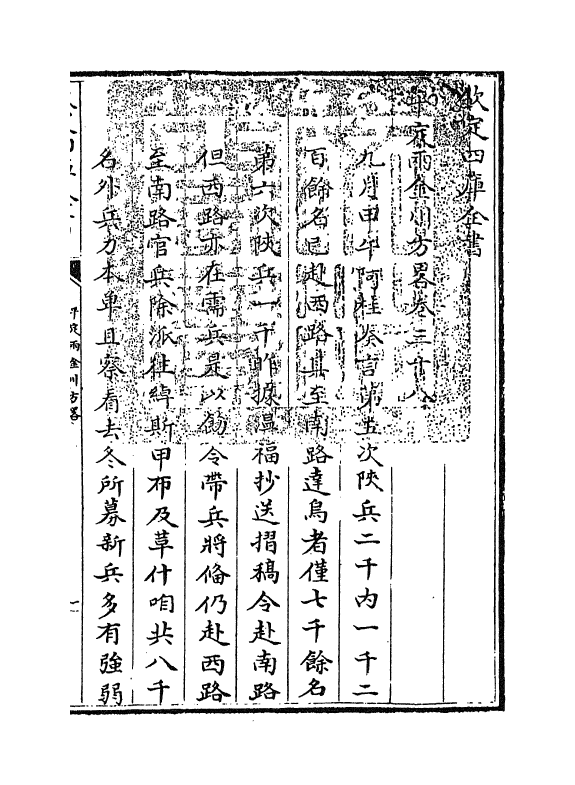 欽定四庫全書
平定兩金川方畧卷三十八
九月甲午阿桂奏言第五次陜兵二千內一千二
百餘名已赴西路其至南路達烏者僅七千餘名
第六次陜兵一千昨據溫福抄送摺稿令赴南路
但西路亦在需兵是以劄令帶兵將備仍赴西路
至南路官兵除派往綽斯甲布及草什咱共八千
名外兵力本單且察看去冬所募新兵多有強弱
平定兩金川方畧
一